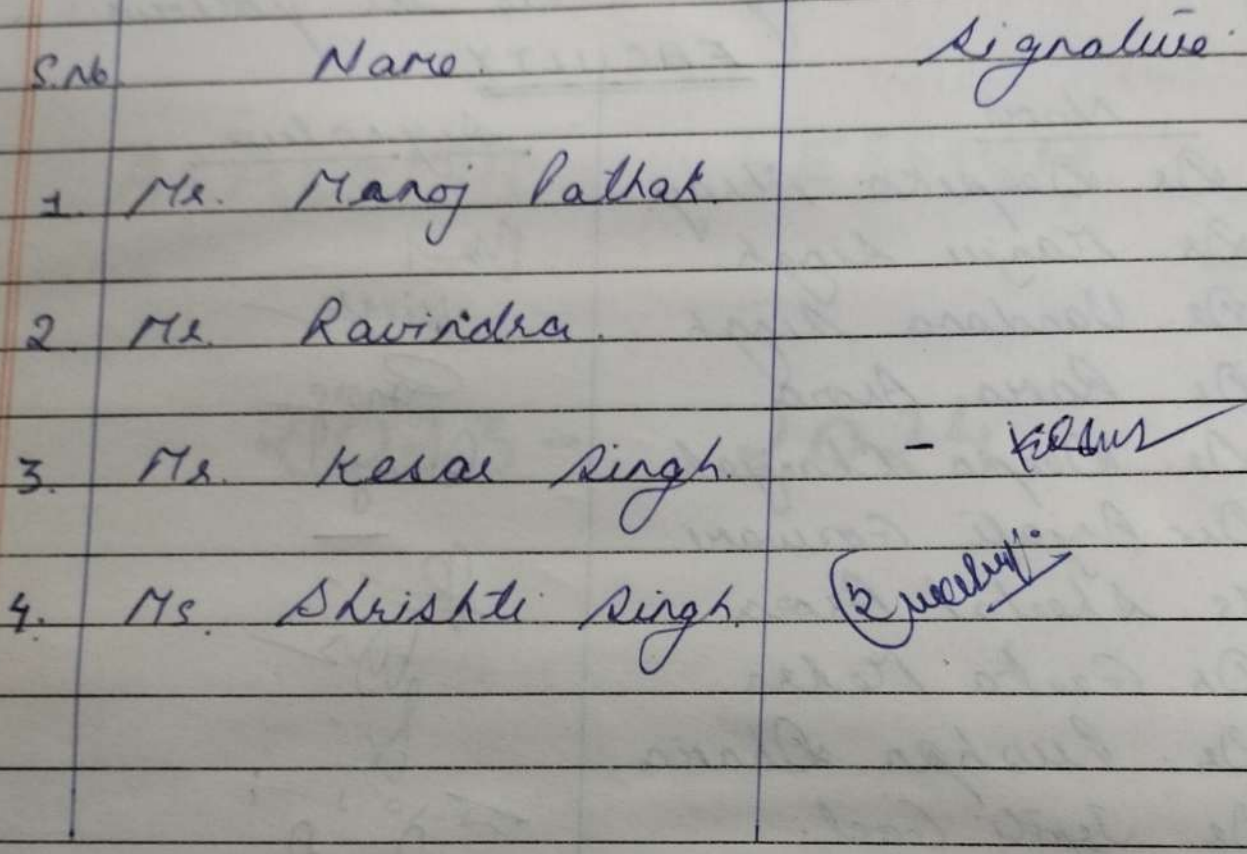 S.No. Name. Signature.
1. Mr. Manoj Pathak.
2. Mr. Ravindra.
3. Mr. Kesar Singh. -
4. Ms. Shrishti Singh.